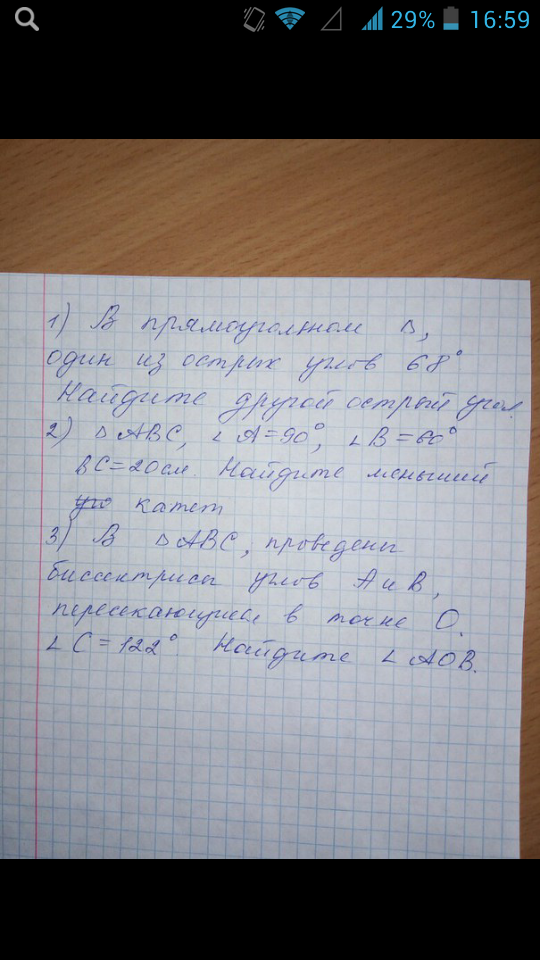 29% 16:59
1) В прямоугольном △,
один из острых углов 68°
Найдите другой острый угол.
2) △ABC, ∠A=90°, ∠B=60°
BC=20см Найдите меньший
уго катет
3) В △ABC, проведены
биссектрисы углов A и B,
пересекающиеся в точке O.
∠C=122° Найдите ∠AOB.